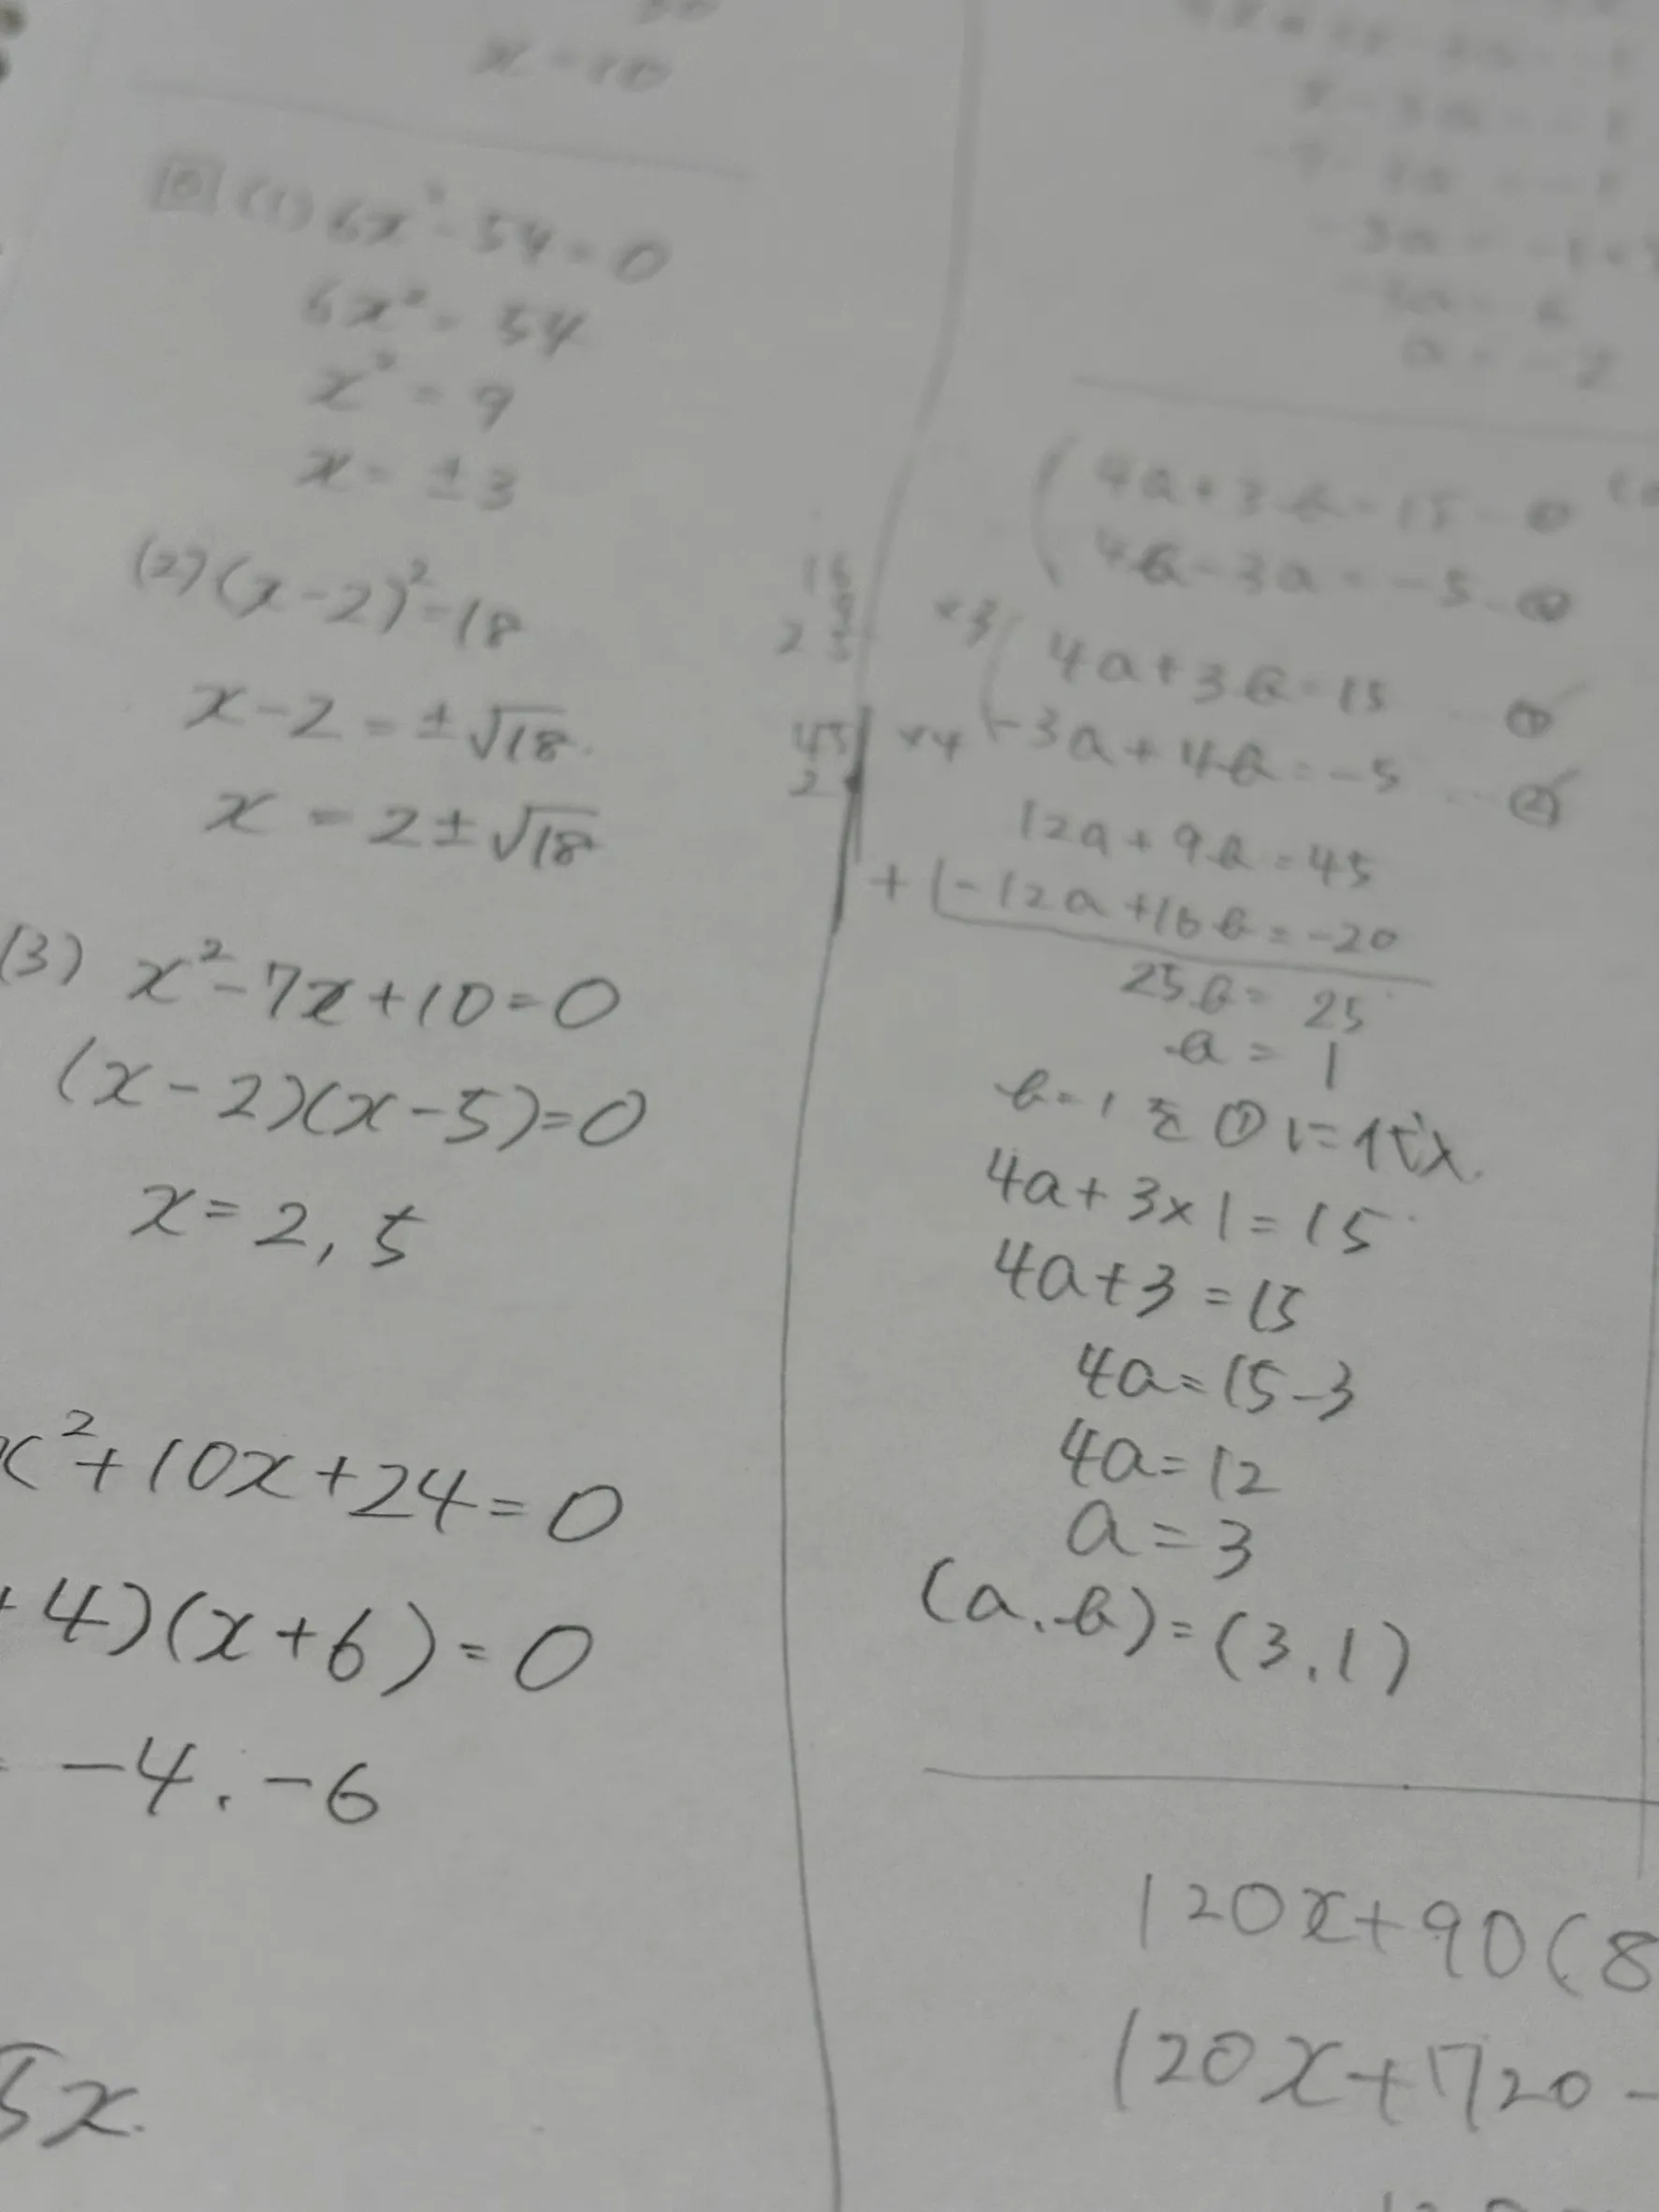 (1) 6x² - 54 = 0
6x² = 54
x² = 9
x = ±3
(2) (x-2)² = 18
x-2 = ±√18
x = 2±√18
(3) x²-7x+10=0
(x-2)(x-5)=0
x=2, 5
x²+10x+24=0
+4)(x+6)=0
-4. -6
5x
4a+3b=15 ①
4b-3a=-5 ②
×3 4a+3b=15 ①
×4 -3a+4b=-5 ②
12a+9b=45
+ -12a+16b=-20
25b=25
b=1
b=1を①に代入
4a+3×1=15
4a+3=15
4a=15-3
4a=12
a=3
(a.b)=(3.1)
120x+90(8
120x+720-